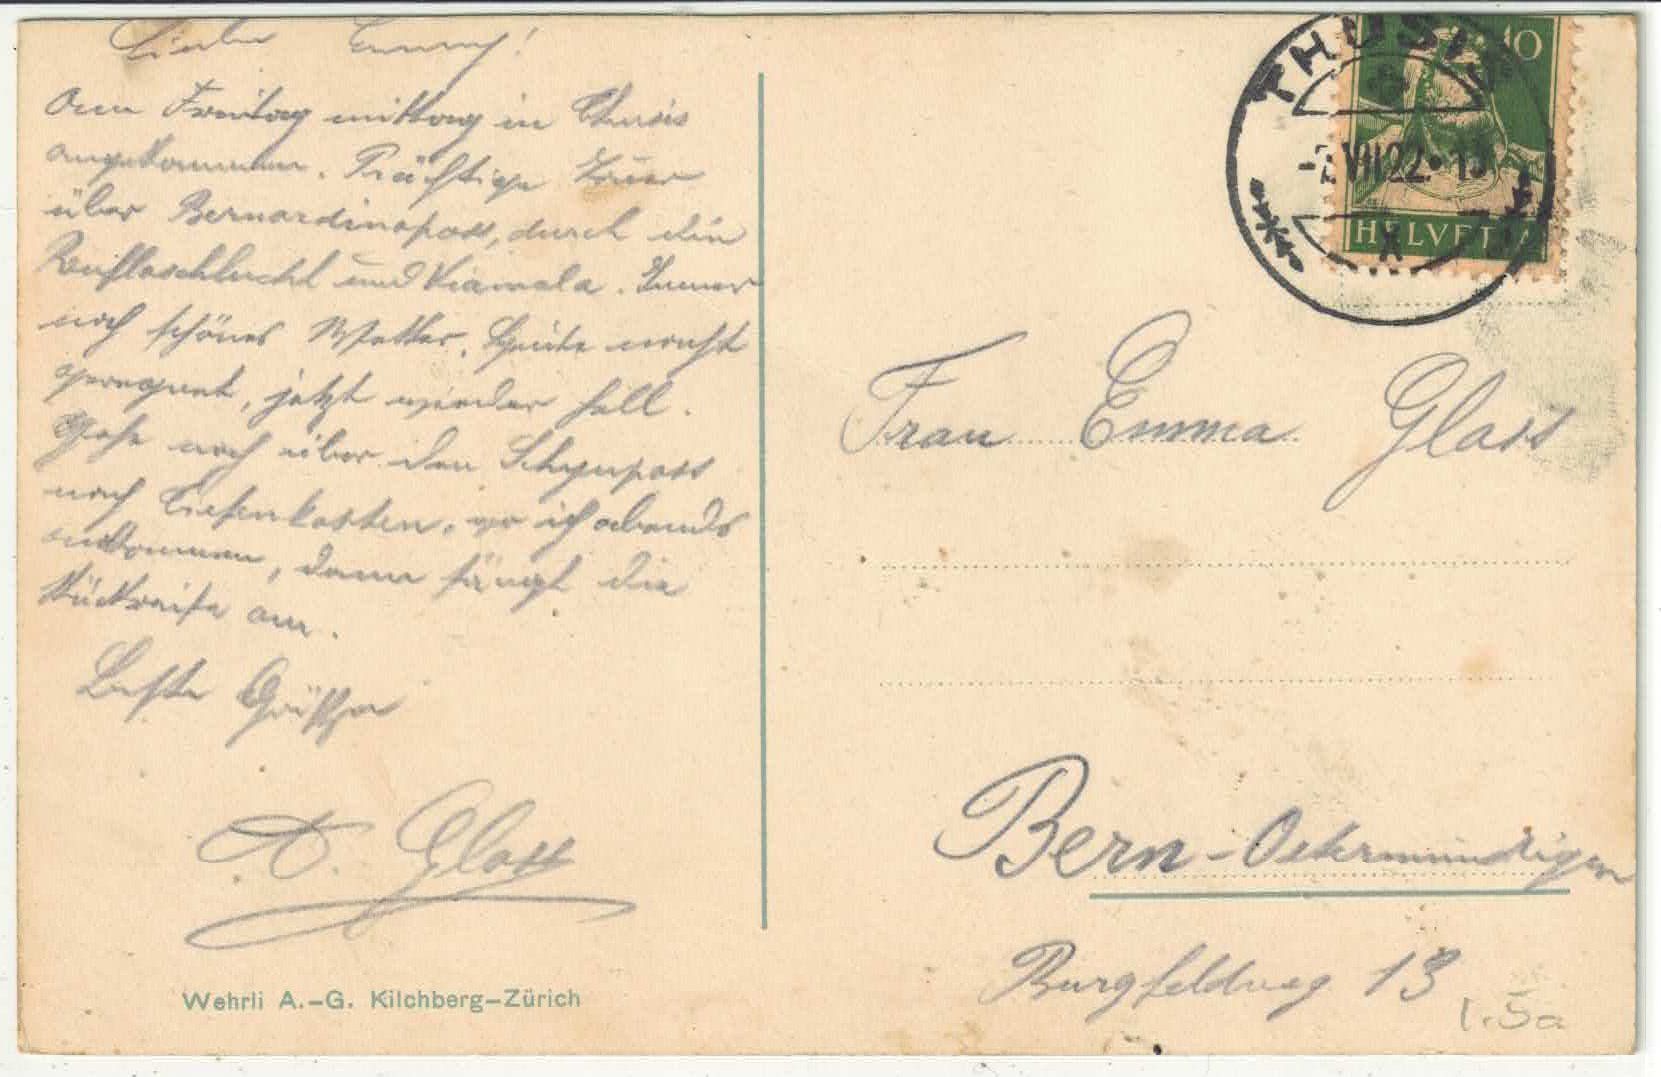 Liebe Emmy!
Am Freitag mittag in Thusis
angekommen. Prächtige Tour
über Bernardinopass, durch die
Roflaschlucht und Viamala. Immer
noch schönes Wetter. Heute nacht
geregnet, jetzt wieder hell.
Gehe noch über den Schynpass
nach Tiefenkasten, wo ich abends
ankomme, dann fängt die
Rückreise an.
Beste Grüsse
A. Glass
Wehrli A.-G. Kilchberg-Zürich
THUSIS
VII 22
10
HELVETIA
Frau Emma Glass
Bern - Ostermundigen
Burgfeldweg 13
1.5a